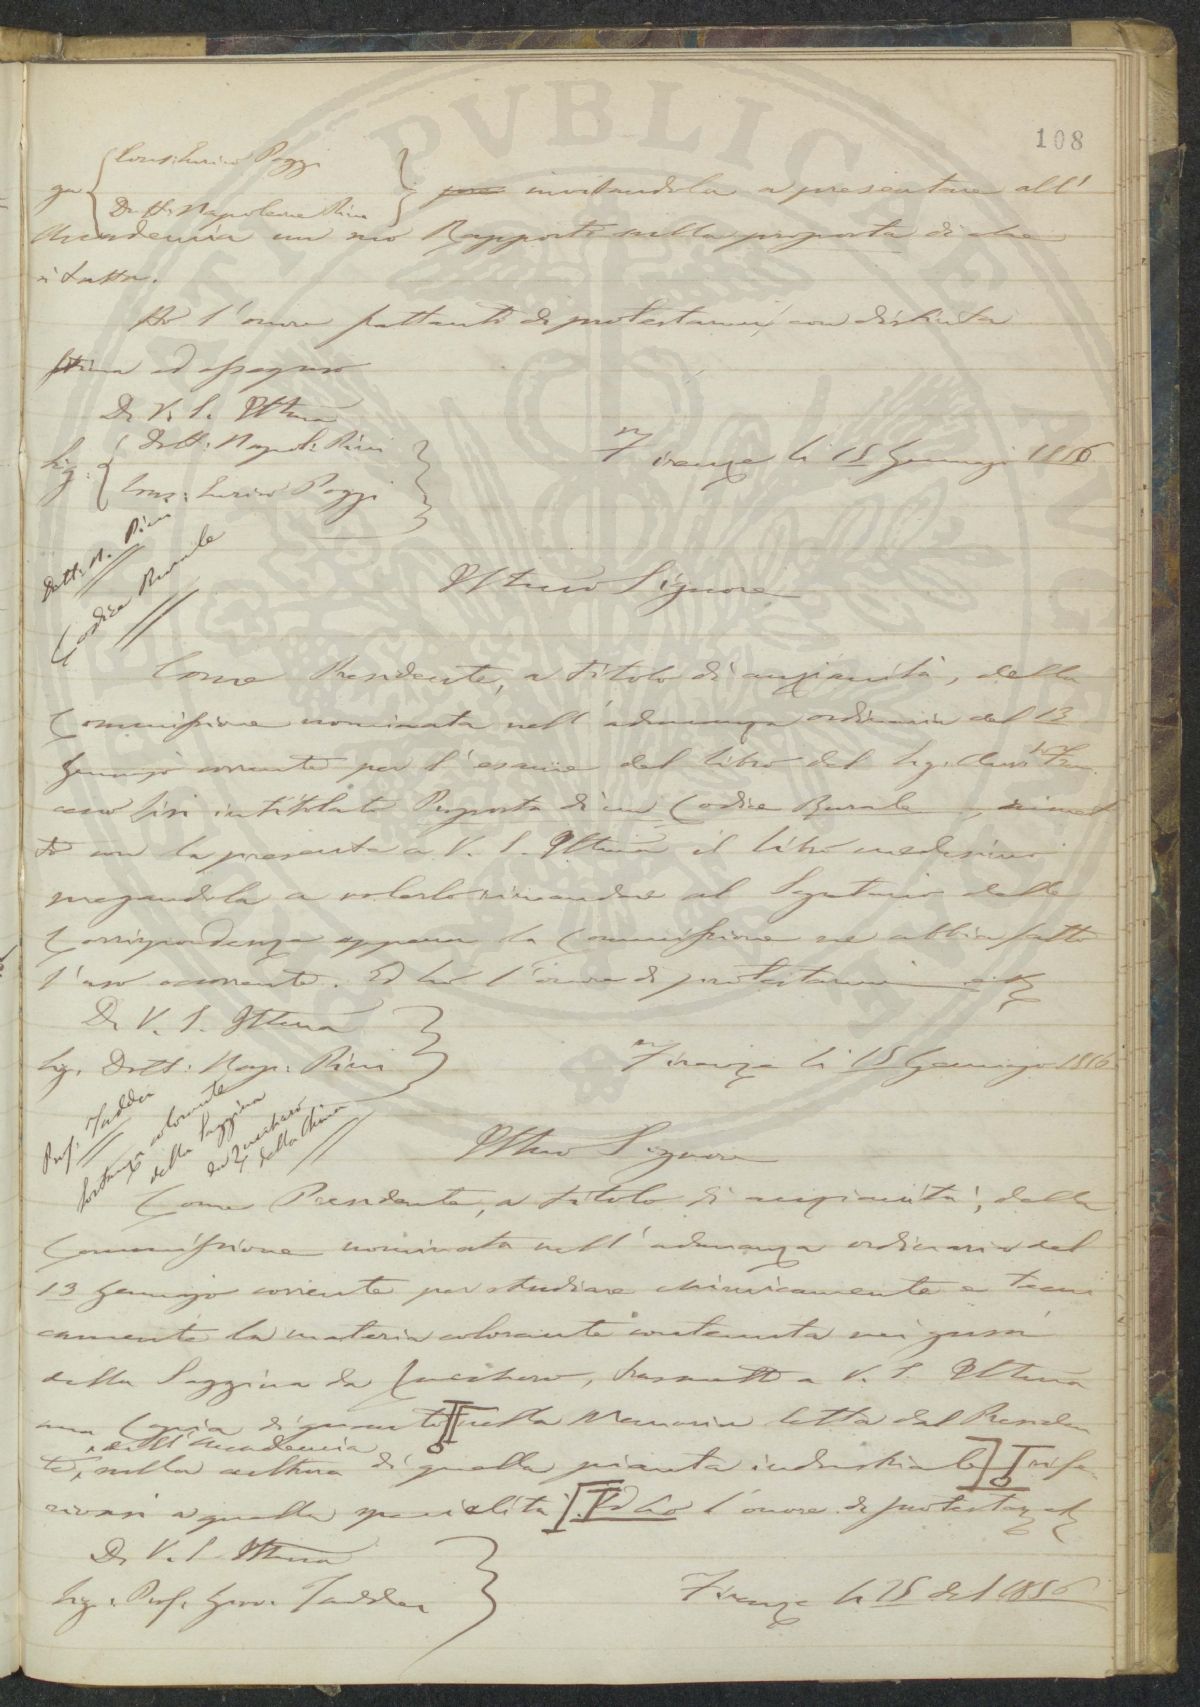 108
gu { Cons: Enrico Poggi
Dott: Napoleone Pini } invitandola a presentare all'
Accademia un suo Rapporto sulla proposta di che
si tratta.
Ho l'onore frattanto di protestarmi con distinta
stima ed ossequio
Di V. S. Illma
Sig: { Dott: Napol: Pini
Cons: Enrico Poggi }
Firenze li 15 Gennajo 1856
Dott: N. Pini
Codice Rurale
Illmo Signore
Come Presidente, a titolo di anzianità, della
Commissione nominata nell'adunanza ordinaria del 13
Gennajo corrente per l'esame del libro del Sig.
intitolato Proposta di un Codice Rurale, rimet
to con la presente a V. S. Illma il libro medesimo
pregandola a volerlo rimandare al Segretario delle
Corrispondenze appena la Commissione ne abbia fatto
l'uso occorrente. Ed ho l'onore di protestarmi
Di V. S. Illma
Sig. Dott: Nap: Pini
Firenze li 15 Gennajo 1856
Prof. Taddei
Sostanza colorante
della Saggina
da Zucchero
della China
Illmo Signore
Come Presidente, a titolo di anzianità, della
Commissione nominata nell'adunanza ordinaria del
13 Gennajo corrente per studiare chimicamente e tecni
camente la materia colorante contenuta nei gusci
della Saggina da Zucchero, trasmetto a V. S. Illma
una Copia di quanto nella Memoria letta dal Presiden
te, dell'Accademia
sulla cultura di quella pianta industriale rife
rivasi a quella specialità. Ed ho l'onore di
Di V. S. Illma
Sig: Prof. Giov. Taddei
Firenze li 15 del 1856
PVBLICAE